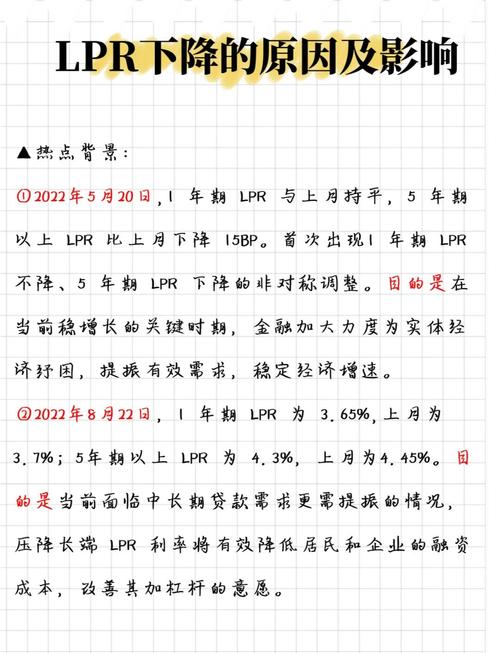 LPR下降的原因及影响
▲热点背景：
①2022年5月20日,1 年期 LPR 与上月持平，5 年期
以上 LPR 比上月下降 15BP。首次出现1 年期 LPR
不降、5 年期 LPR 下降的非对称调整。目的是在
当前稳增长的关键时期，金融加大力度为实体经
济纾困，提振有效需求，稳定经济增速。
②2022年8月22日，1 年期 LPR 为 3.65%,上月为
3.7%；5年期以上 LPR 为 4.3%，上月为4.45%。目
的是当前面临中长期贷款需求更需提振的情况，
压降长端 LPR 利率将有效降低居民和企业的融资
成本，改善其加杠杆的意愿。